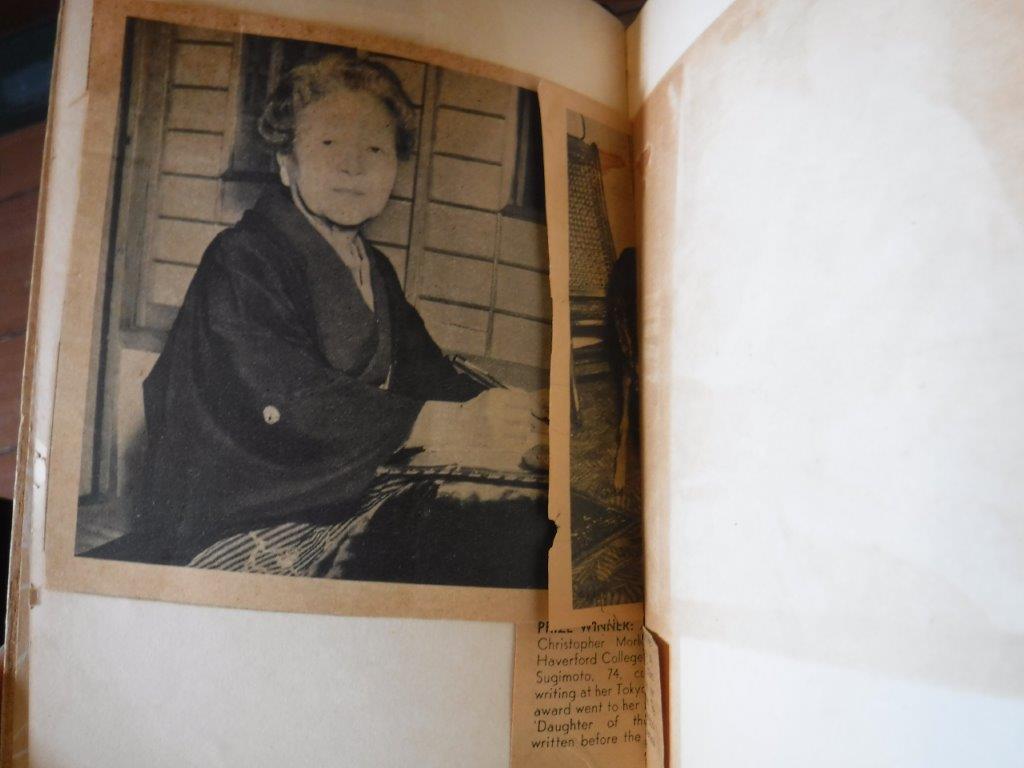 PRIZE WINNER:
Christopher Morl
Haverford College
Sugimoto, 74, co
writing at her Toky
award went to her
'Daughter of th
written before the